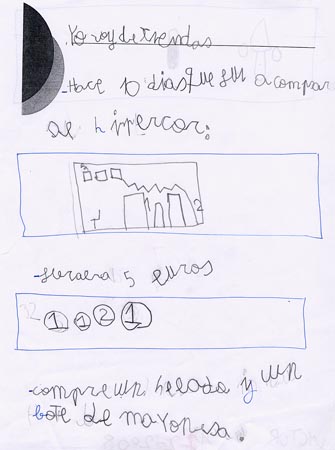 Yo voy de tiendas
-Hace 10 dias que fui a compar
al hippercor:
5 euros
1 1 2 1
-compre un helado y un
bote de mayonesa.